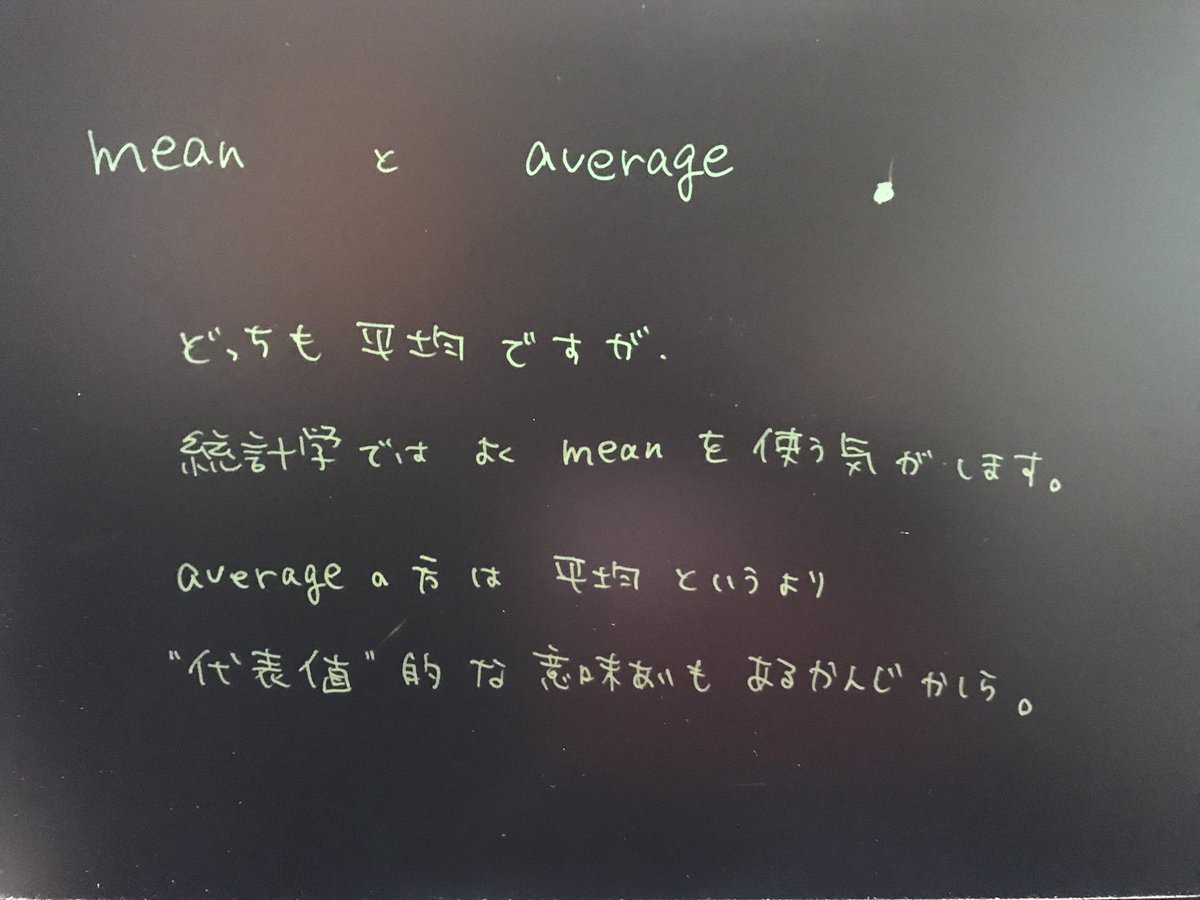 mean と average
どっちも 平均ですが.
統計学では よく mean を 使う気がします。
average の 方は 平均 というより
"代表値" 的な 意味あいも あるかんじかしら。